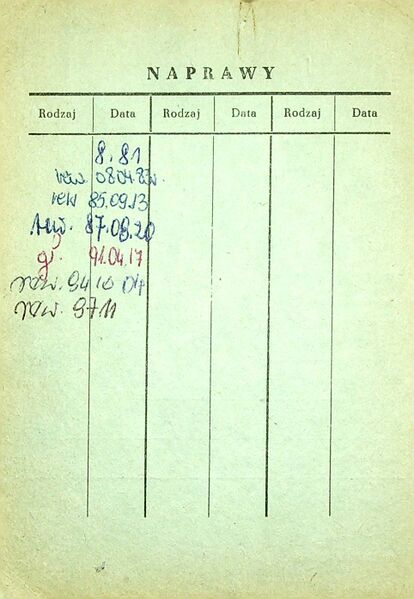 NAPRAWY
Rodzaj Data Rodzaj Data Rodzaj Data
8.81
rew. 08.04.83r.
rew 85.09.13
rew. 87.08.20
gł. 91.04.17
rew. 94 10 04
rew. 97 11